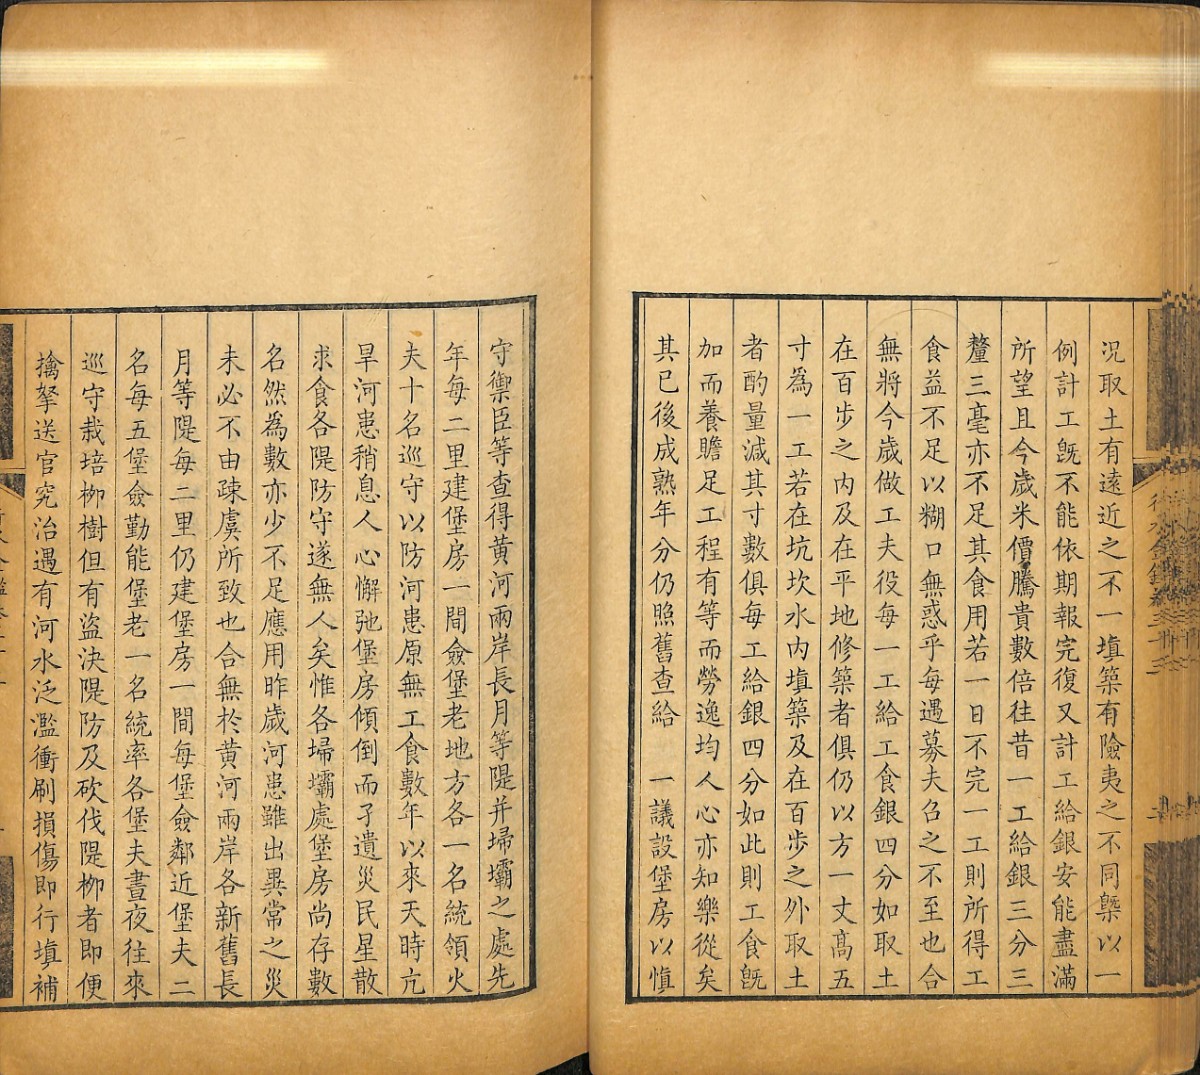 況取土有遠近之不一填築有險夷之不同槩以一
例計工旣不能依期報完復又計工給銀安能盡滿
所望且今歲米價騰貴數倍往昔一工給銀三分三
釐三毫亦不足其食用若一日不完一工則所得工
食益不足以糊口無惑乎每遇募夫召之不至也合
無將今歲做工夫役每一工給工食銀四分如取土
在百步之內及在平地修築者俱仍以方一丈高五
寸為一工若在坑坎水內填築及在百步之外取土
者酌量減其寸數俱每工給銀四分如此則工食旣
加而養贍足工程有等而勞逸均人心亦知樂從矣
其已後成熟年分仍照舊查給　一議設堡房以慎
守禦臣等查得黃河兩岸長月等隄并埽壩之處先
年每二里建堡房一間僉堡老地方各一名統領火
夫十名巡守以防河患原無工食數年以來天時亢
旱河患稍息人心懈弛堡房傾倒而孑遺災民星散
求食各隄防守遂無人矣惟各埽壩處堡房尚存數
名然為數亦少不足應用昨歲河患雖出異常之災
未必不由疎虞所致也合無於黃河兩岸各新舊長
月等隄每二里仍建堡房一間每堡僉鄰近堡夫二
名每五堡僉勤能堡老一名統率各堡夫晝夜往來
巡守栽培柳樹但有盜決隄防及砍伐隄柳者即便
擒拏送官究治遇有河水泛濫衝刷損傷即行填補